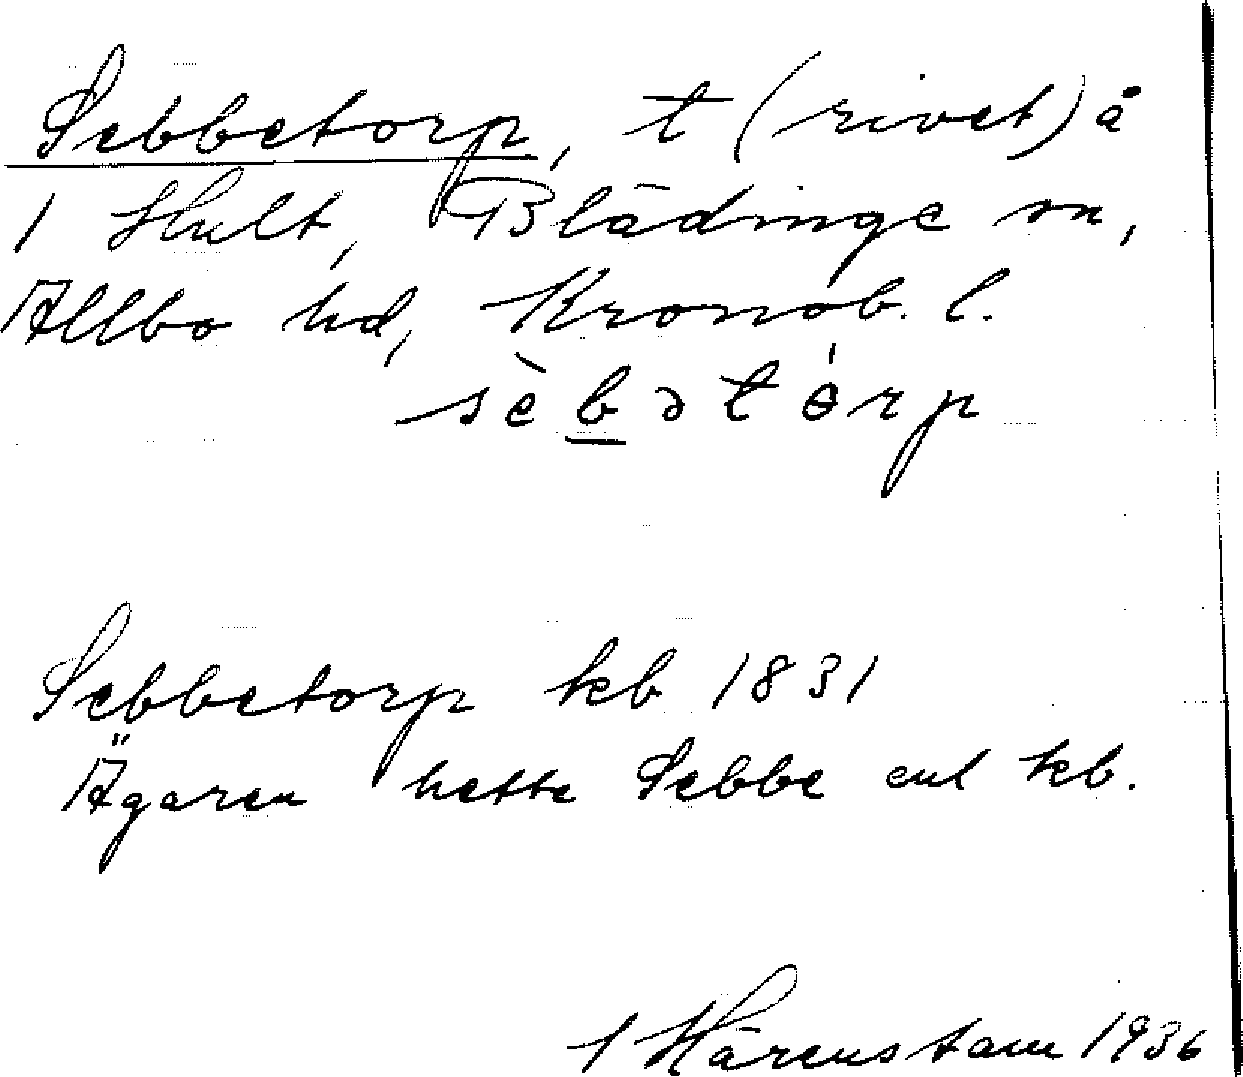 Sebbetorp, t (rivet) å
1 Hult, Blädinge sn,
Allbo hd, Kronob. l.
sèbətórp
Sebbetorp kb 1831
Ägaren hette Sebbe enl kb.
Härenstam 1936